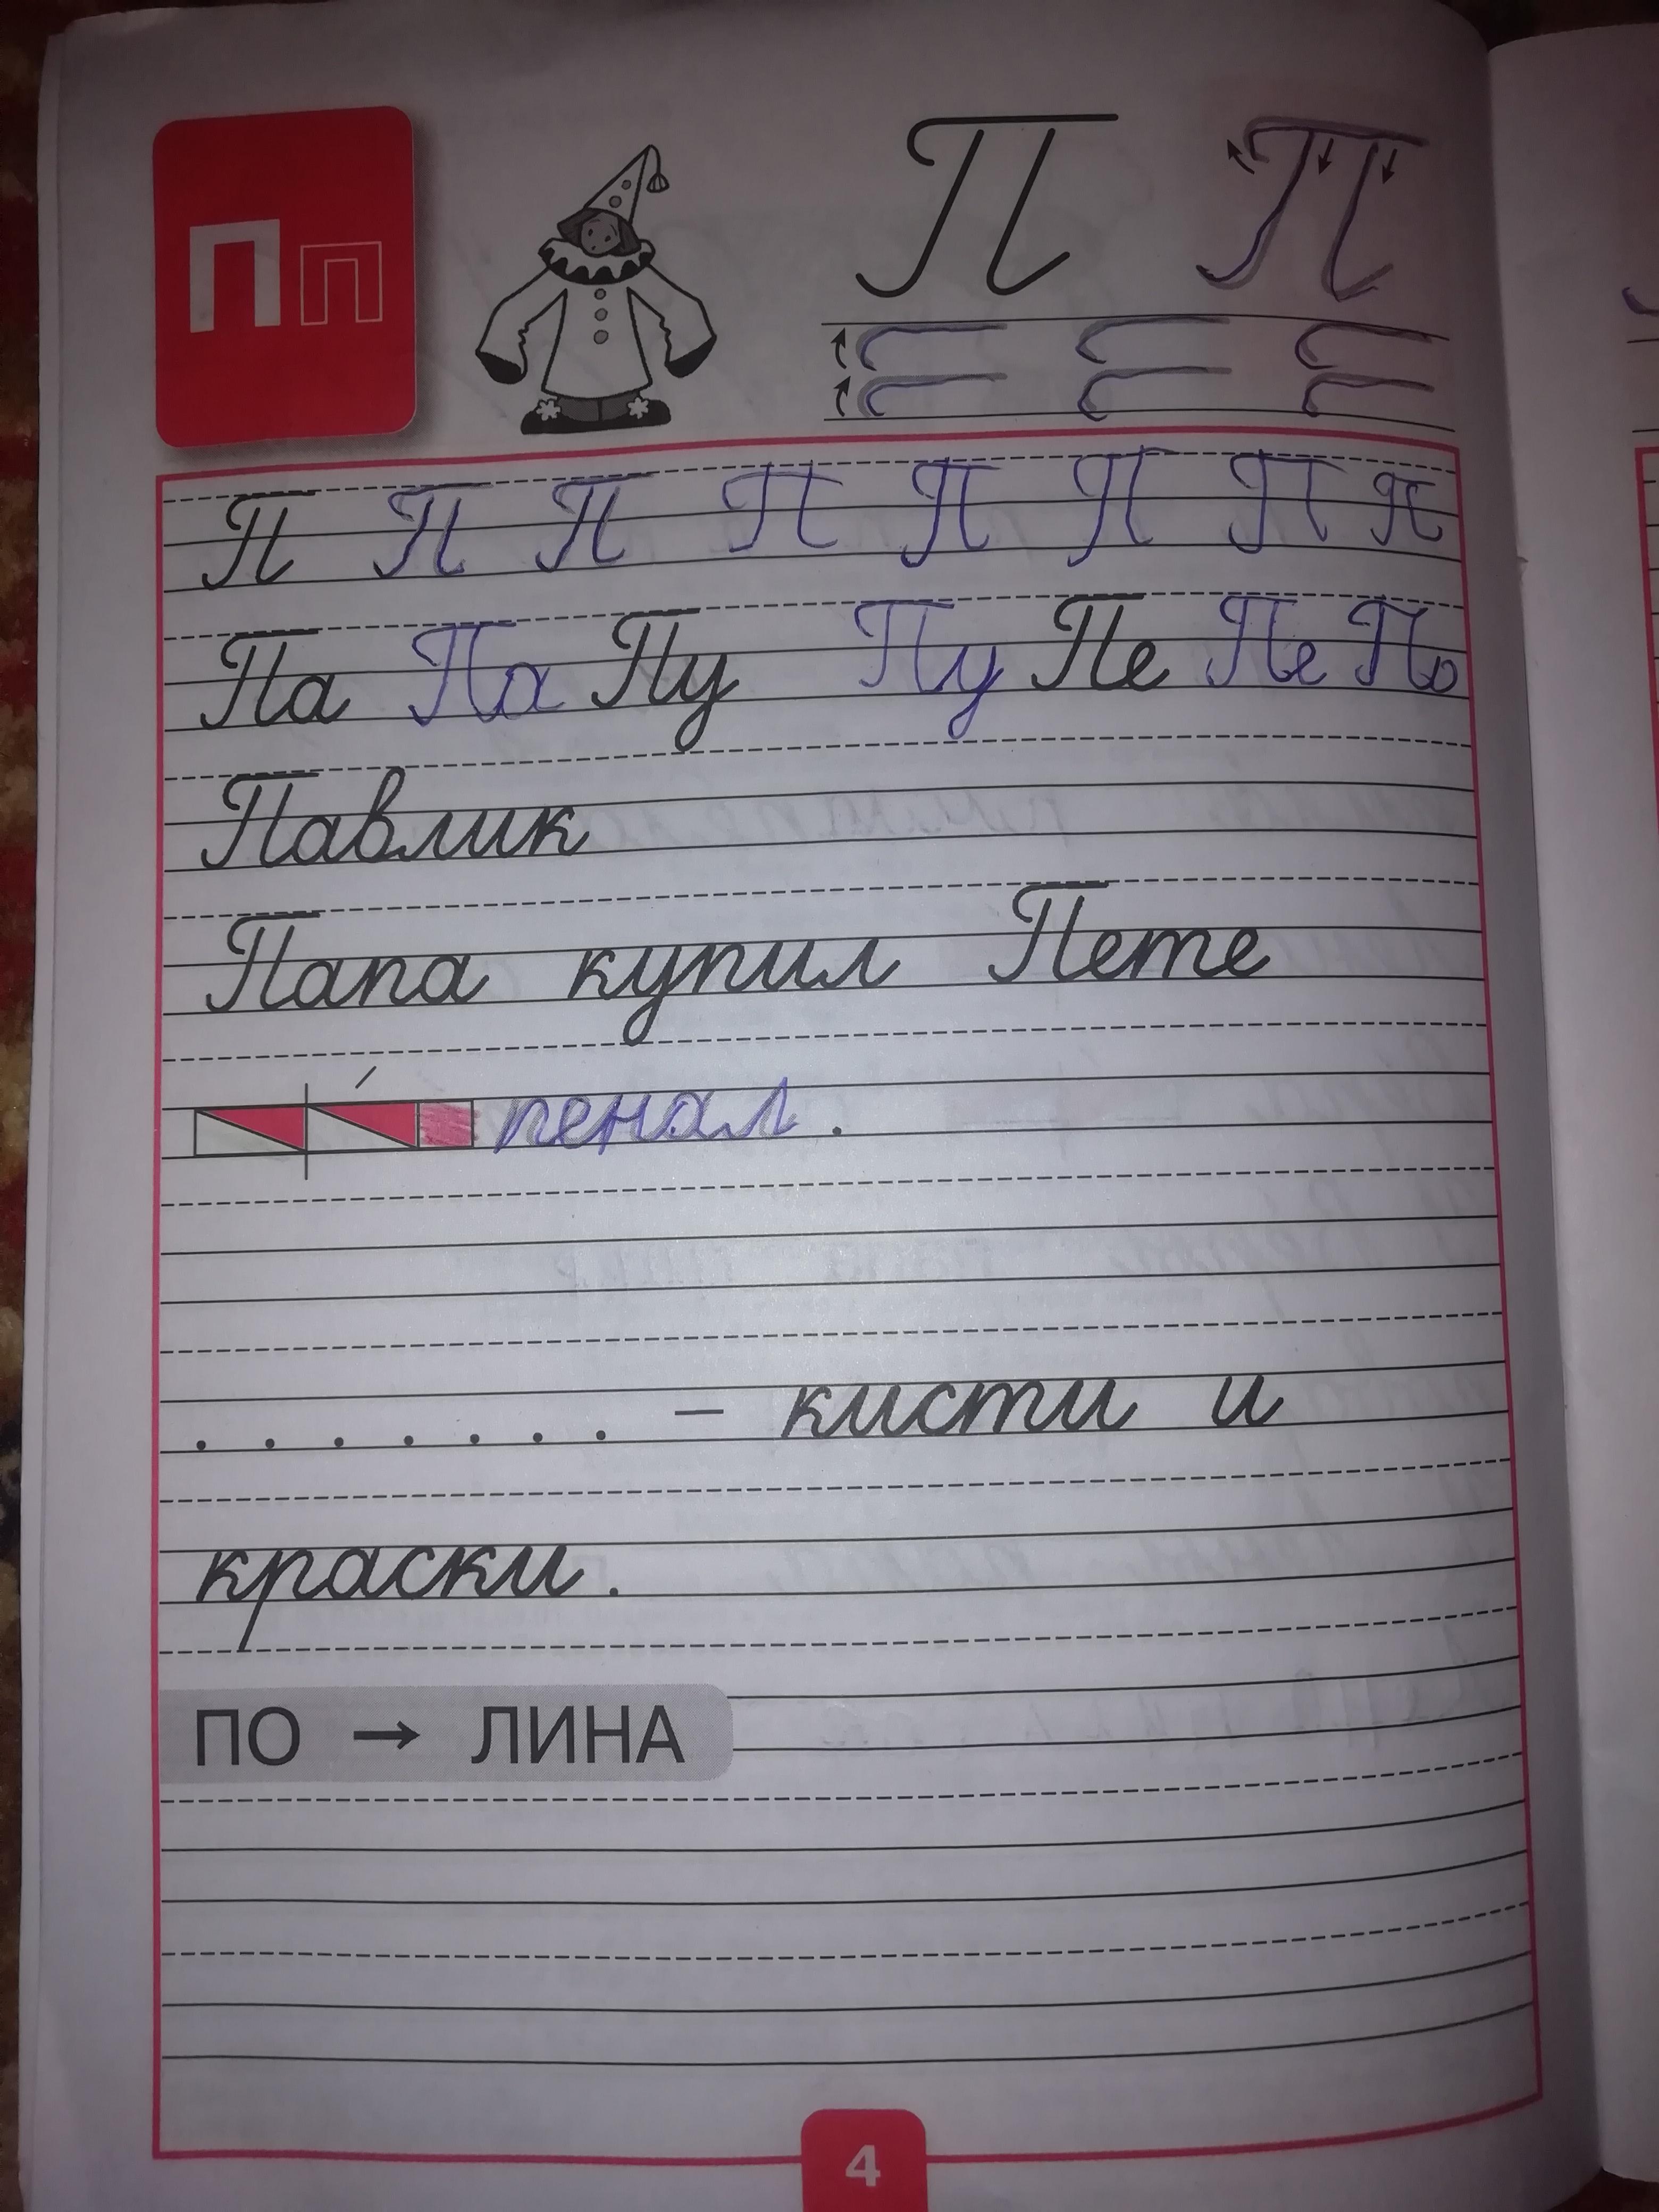 Пп
П П
П П П П П П П П
Па Па Пу Пу Пе Пе По
Павлик
Папа купил Пете
пенал.
. . . . . . . – кисти и
краски.
ПО → ЛИНА
4